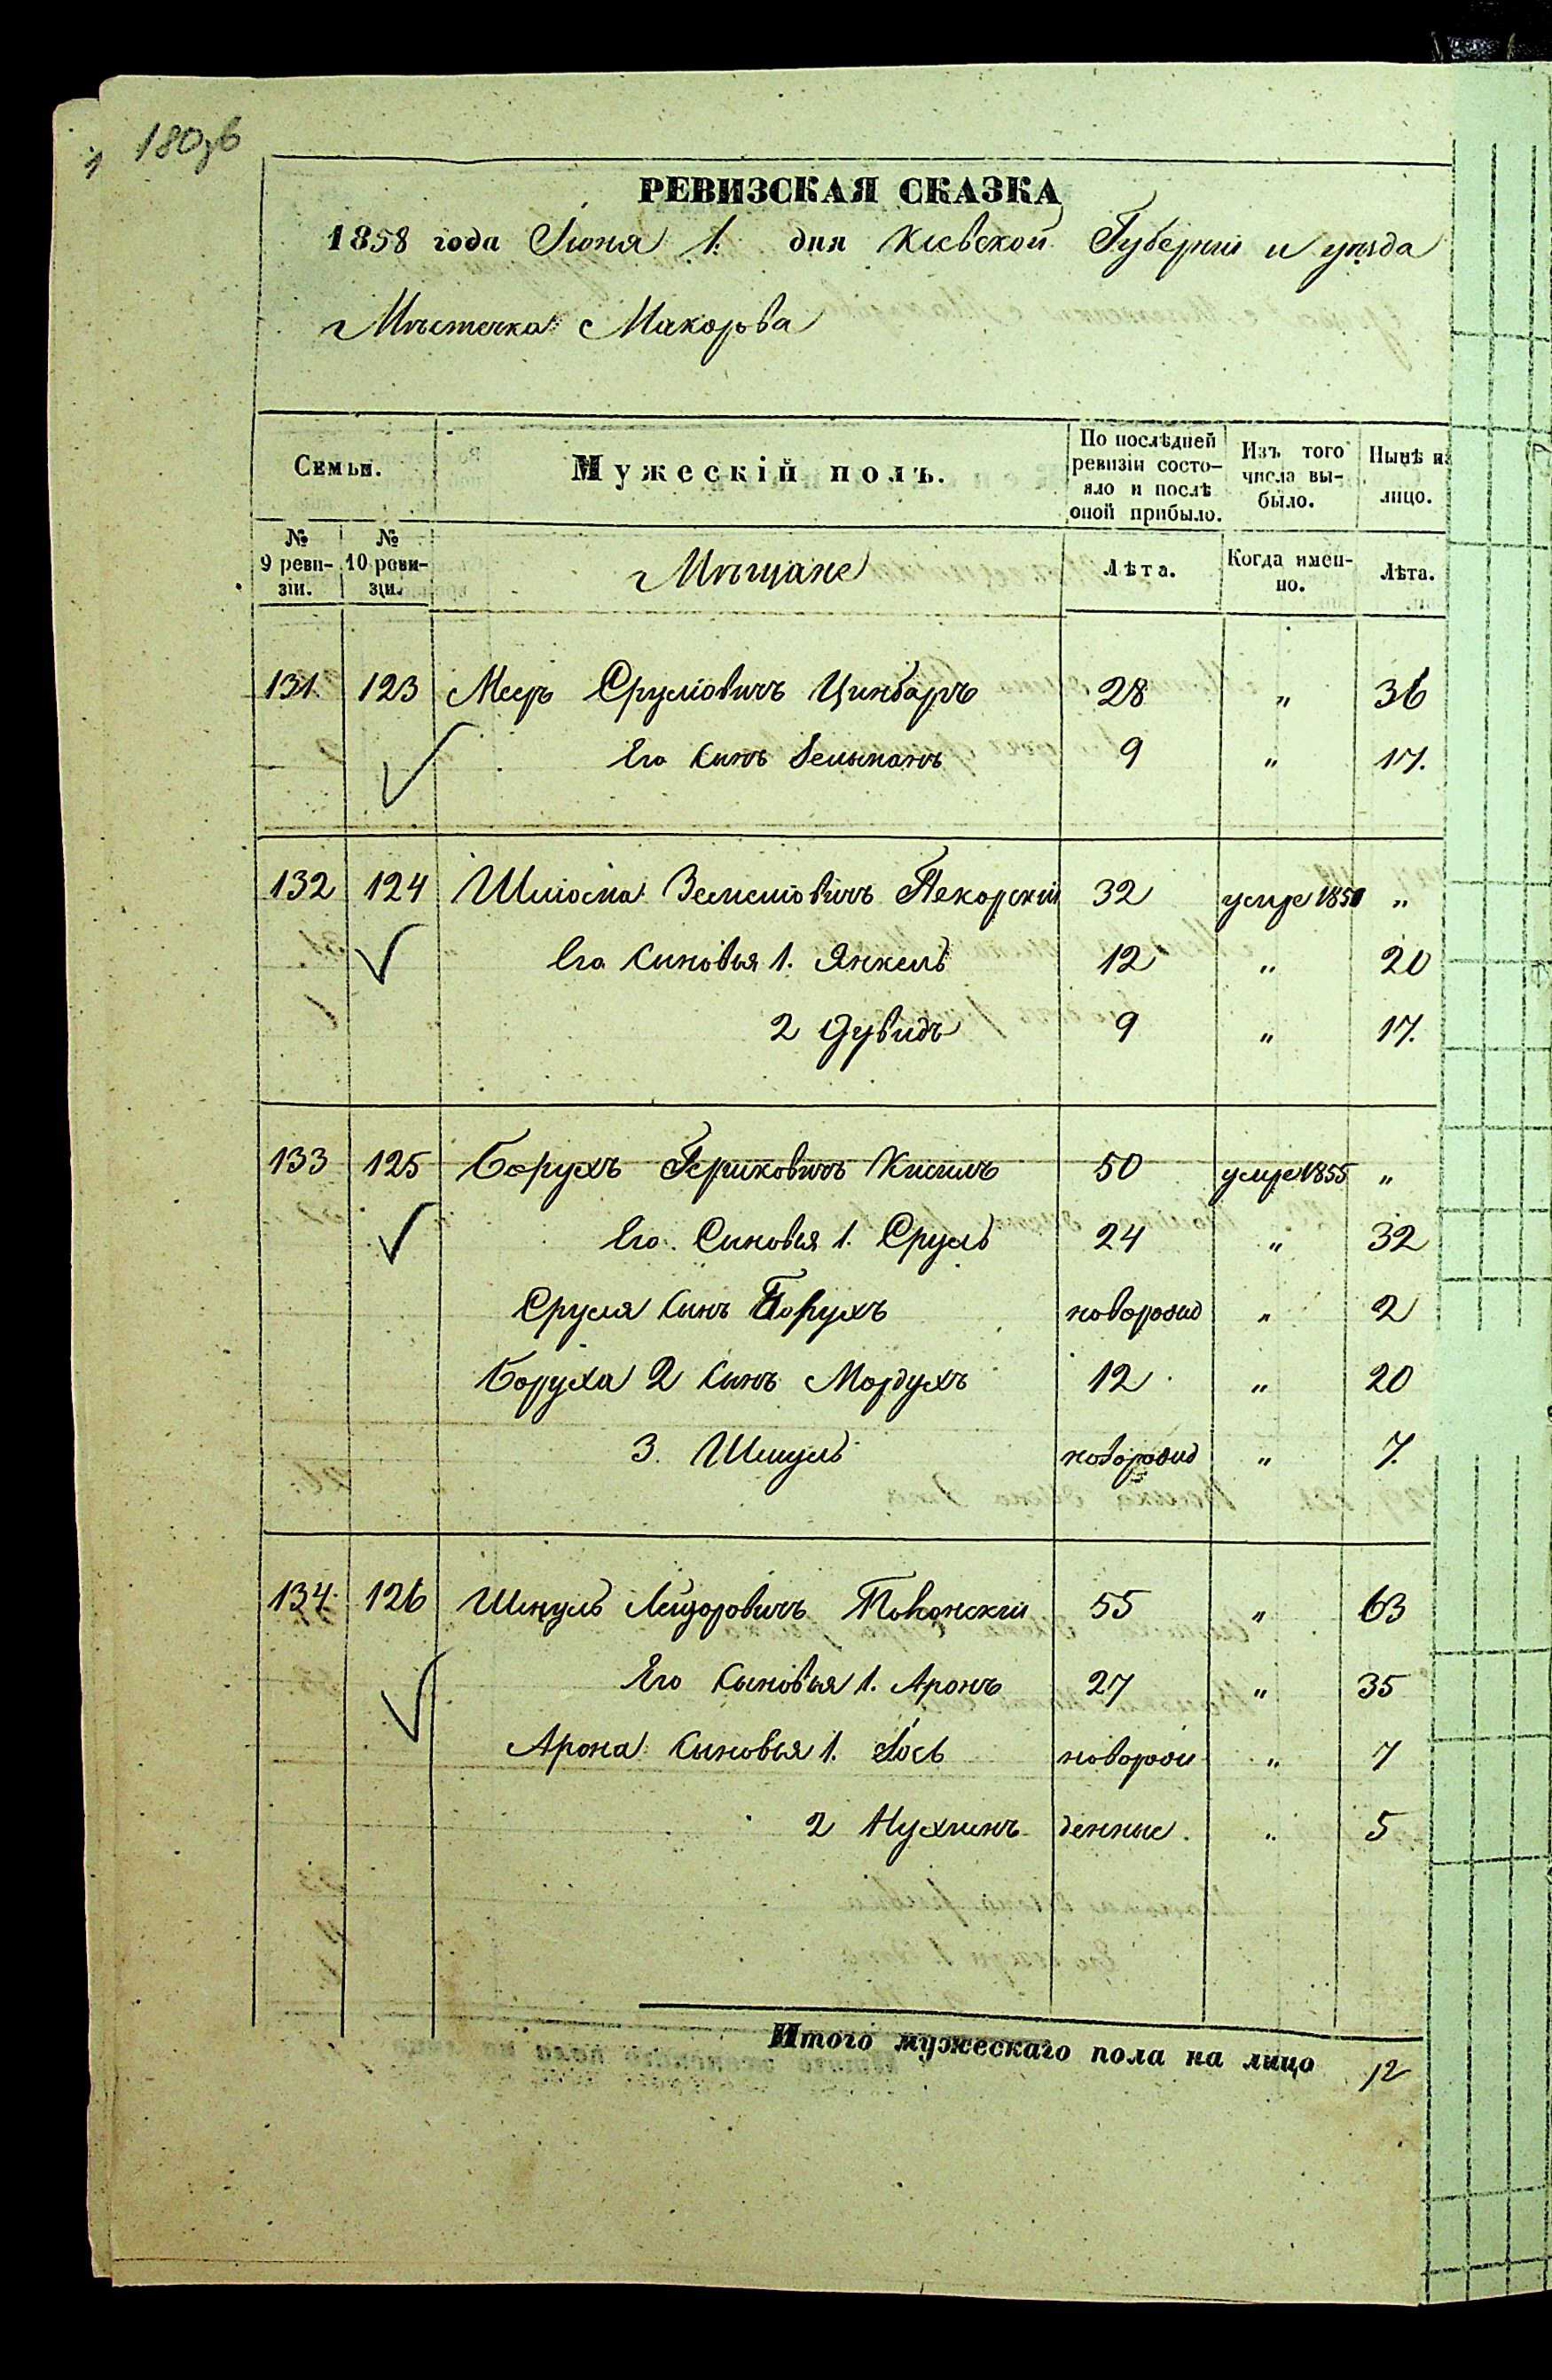 180об
РЕВИЗСКАЯ СКАЗКА
1858 года Іюня 1. дня Кіевской Губерніи и уѣзда
Мѣстечка Макарова
Семьи. Мужескій полъ. По послѣдней ревизіи состояло и послѣ оной прибыло. Изъ того числа выбыло. Нынѣ на лицо.
№ 9 ревизіи. № 10 ревизіи. Мѣщане Лѣта. Когда именно. Лѣта.
131. 123 Мееръ Сруліовичъ Цинбаръ 28 " 36
Его сынъ Зельманъ 9 " 17.
132 124 Шліома Зельміовичъ Пекарскій 32 умре 1850 "
Его сыновья 1. Янкель 12 " 20
2 Дувидъ 9 " 17.
133 125 Борухъ Гершковичъ 50 умре 1855 "
Его Сыновья 1. Сруль 24 " 32
Сруля сынъ Борухъ новорожд " 2
Боруха 2 сынъ Мордухъ 12 " 20
3. Шмуль новорожд " 7.
134. 126 Шмуль Лейзоровичъ 55 " 63
Его сыновья 1. Аронъ 27 " 35
Арона сыновья 1. Іось новорож " 7
2 Нухимъ денные. " 5
Итого мужескаго пола на лицо 12